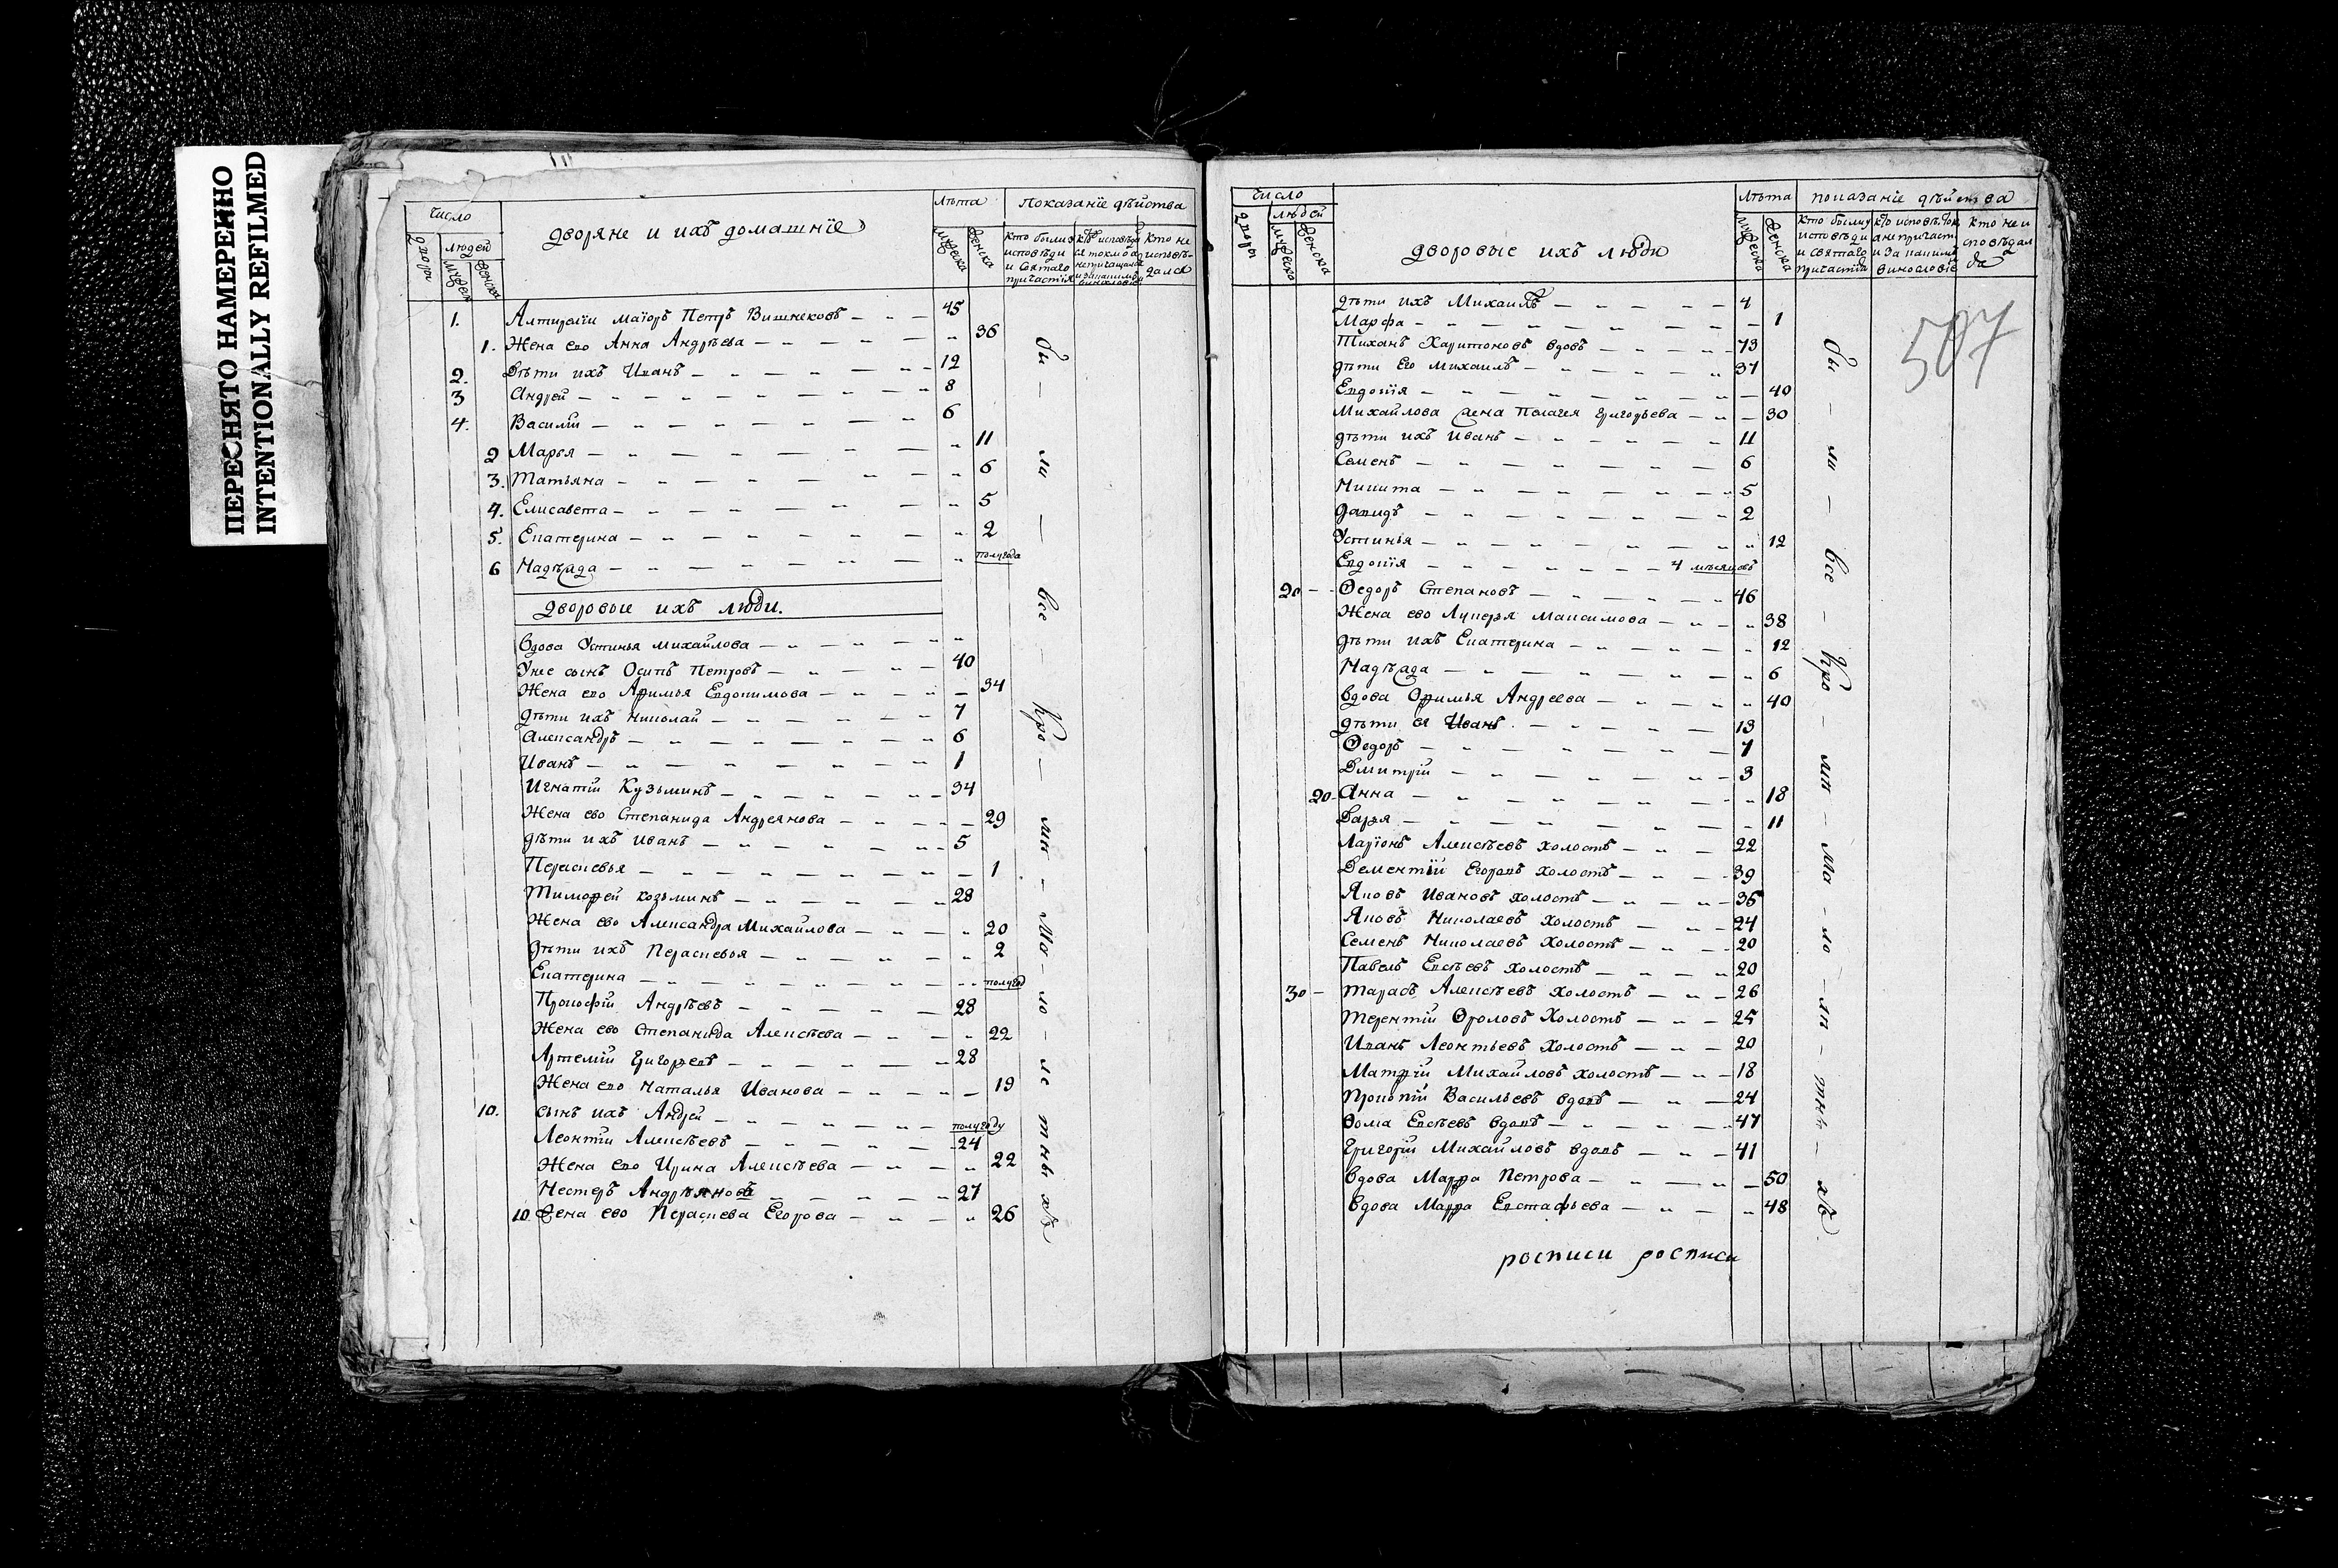 ПЕРЕСНЯТО НАМЕРЕННО
INTENTIONALLY REFILMED
Число
дворян и ихъ домашніе
лѣта
показаніе дѣйства
людей
мужеска
женска
кто были у исповѣди и святаго причастія
кто не исповѣдался
1. Маіоръ Петръ Вишняковъ — 45
1. Жена ево Анна Андрѣева — 36
2. Дѣти ихъ Иванъ — 12
3 Андрей — 8
4. Василій — 6
2 Марья — 11
3. Татьяна — 6
4. Елисавета — 5
5. Екатерина — 2
6 Надѣжда — полугода
дворовые ихъ люди.
Вдова Устинья Михайлова —
Унее сынъ Осипъ Петровъ — 40
Жена ево Афимья Евдокимова — 34
Дѣти ихъ Николай — 7
Александръ — 6
Иванъ — 1
Игнатій Кузьминъ — 34
Жена ево Степанида Андреянова — 29
дѣти ихъ Иванъ — 5
Перасковья — 1
Тимофей Козьминъ — 28
Жена ево Александра Михайлова — 20
Дѣти ихъ Перасковья — 2
Екатерина — полугод
Прокофій Андрѣевъ — 28
Жена ево Степанида Алексѣева — 22
Артемій Григорьевъ — 28
Жена ево Наталья Иванова — 19
10. сынъ ихъ Андрей — полугоду
Леонтій Алексѣевъ — 24
Жена ево Ирина Алексѣева — 22
Нестеръ Андрѣяновъ — 27
10 Жена ево Пераскева Егорова — 26
бы — ли — все
Число
дворы
людей
мужеска
женска
дворовые ихъ люди
лѣта
мужеска
женска
показаніе дѣйства
кто были у исповѣди и святаго причастія
кто не исповѣдал
507
дѣти ихъ Михаилъ — 4
Марфа — 1
Тиханъ Харитоновъ вдовъ — 73
дѣти Его Михаилъ — 37
Евдокія — 40
Михайлова жена Пелагея Григорьева — 30
дѣти ихъ Иванъ — 11
Семенъ — 6
Никита — 5
Давидъ — 2
Устинья — 12
Евдокія — 4 мѣсяцовъ
20 — Ѳедоръ Степановъ — 46
Жена ево Лукерья Максимова — 38
дѣти ихъ Екатерина — 12
Надѣжда — 6
Вдова Офимья Андреева — 40
дѣти ея Иванъ — 13
Ѳедоръ — 7
Дмитрій — 3
20 Анна — 18
Дарья — 11
Ларіонъ Алексѣевъ холостъ — 22
Дементій Егоровъ холостъ — 39
Яковъ Ивановъ холостъ — 36
Яковъ Николаевъ холостъ — 24
Семенъ Николаевъ холостъ — 20
Павелъ Евсѣевъ холостъ — 20
30 — Тарасъ Алексѣевъ холостъ — 26
Терентій Ѳроловъ Холостъ — 25
Иванъ Леонтьевъ холостъ — 20
Матфій Михайловъ холостъ — 18
Прокопій Васильевъ вдовъ — 24
Ѳома Евсѣевъ вдовъ — 47
Григорій Михайловъ вдовъ — 41
Вдова Марфа Петрова — 50
Вдова Марфа Евстафьева — 48
бы — ли — все
росписи росписи